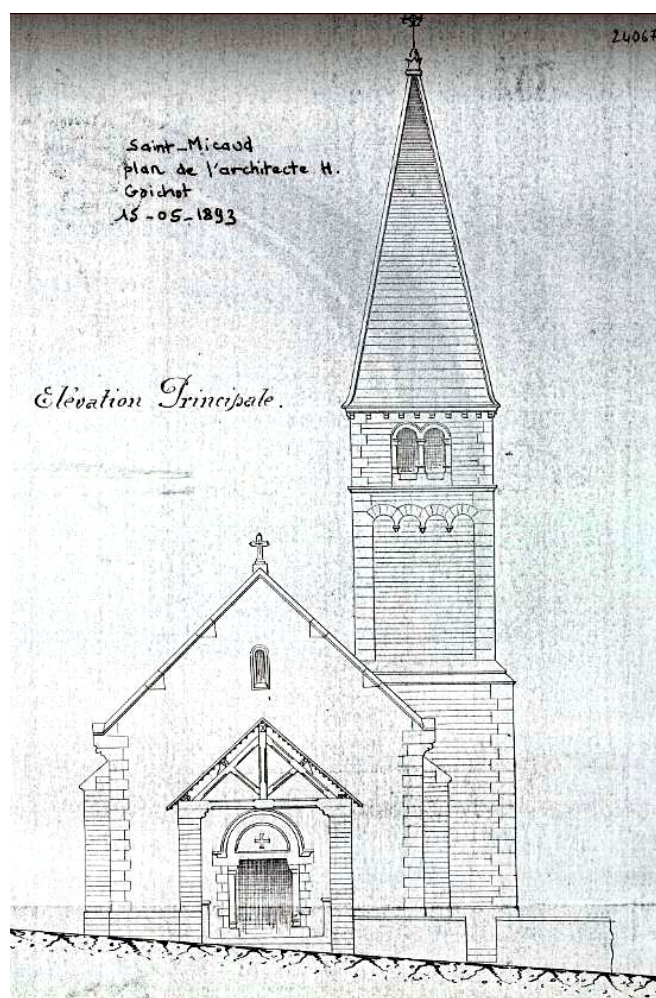 24067
Saint-Micaud
plan de l'architecte H.
Goichot
15-05-1893
Elévation Principale.